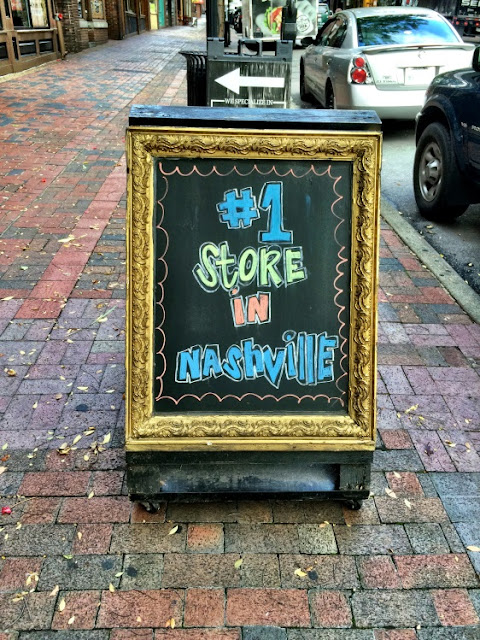 WE SPECIALIZE IN
#1
StORE
IN
NAShville